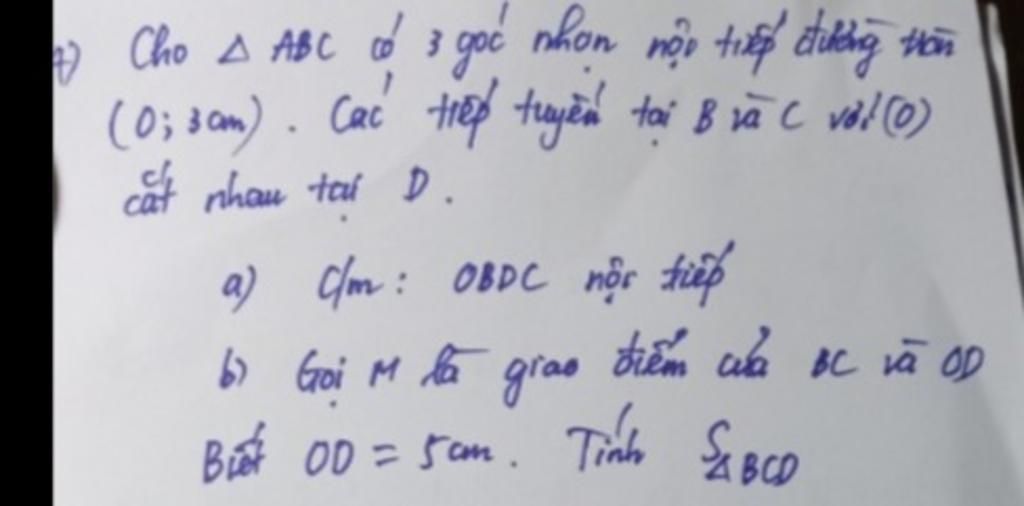 Cho △ ABC có 3 góc nhọn nội tiếp đường tròn
(O; 3cm). Các tiếp tuyến tại B và C với (O)
cắt nhau tại D.
a) C/m: OBDC nội tiếp
b) Gọi M là giao điểm của BC và OD
Biết OD = 5cm. Tính S△BCD